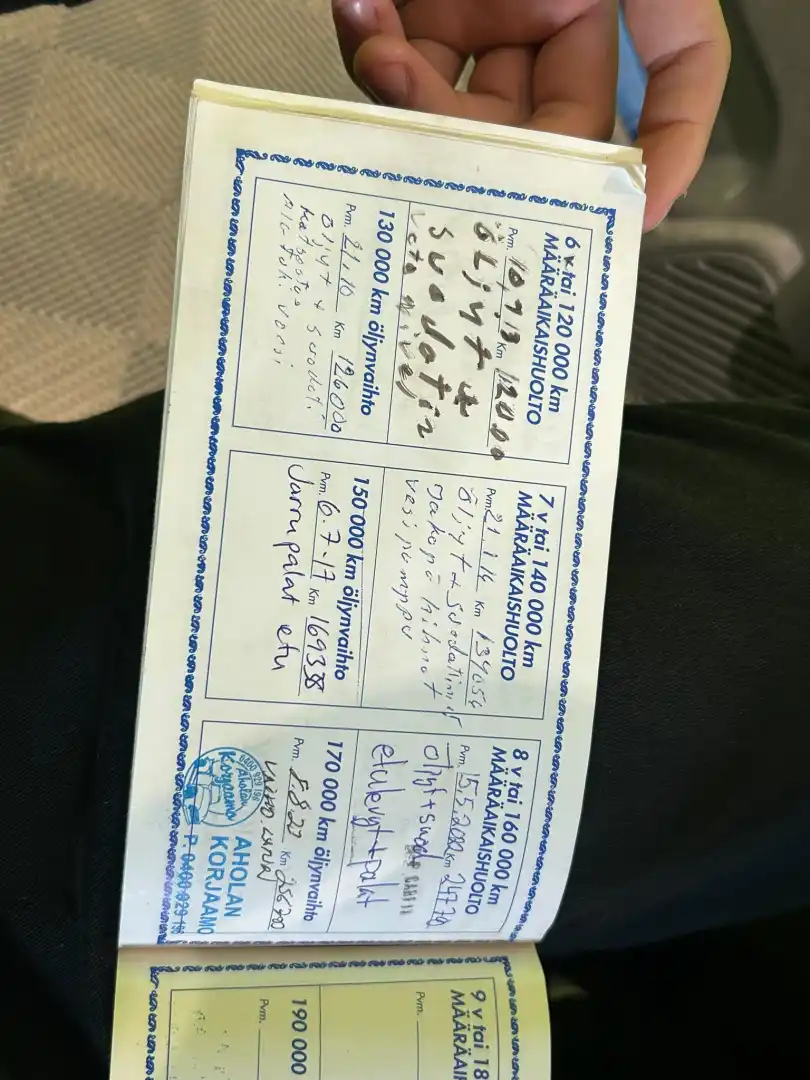 6 v tai 120 000 km
MÄÄRÄAIKAISHUOLTO
Pvm. 10,7,13 Km 12000
öljyt +
suodatin
130 000 km öljynvaihto
Pvm. 21.10 Km 126000
öljyt + suodat.
7 v tai 140 000 km
MÄÄRÄAIKAISHUOLTO
Pvm. 21.1.14 Km 134054
öljyt + suodatimet
Jakopä hihnat
vesipumppu
150 000 km öljynvaihto
Pvm. 6.7-17 Km 169338
Jarrupalat etu
8 v tai 160 000 km
MÄÄRÄAIKAISHUOLTO
Pvm. 15.5.2020 Km
öljyt+suod
etulevyt+palat
170 000 km öljynvaihto
Pvm. 5.8.20 Km 256700
Aholan
Korjaamo
AHOLAN
KORJAAMO
P. 0400-929 196
9 v tai 18
MÄÄRÄAI
Pvm.
190 000
Pvm.